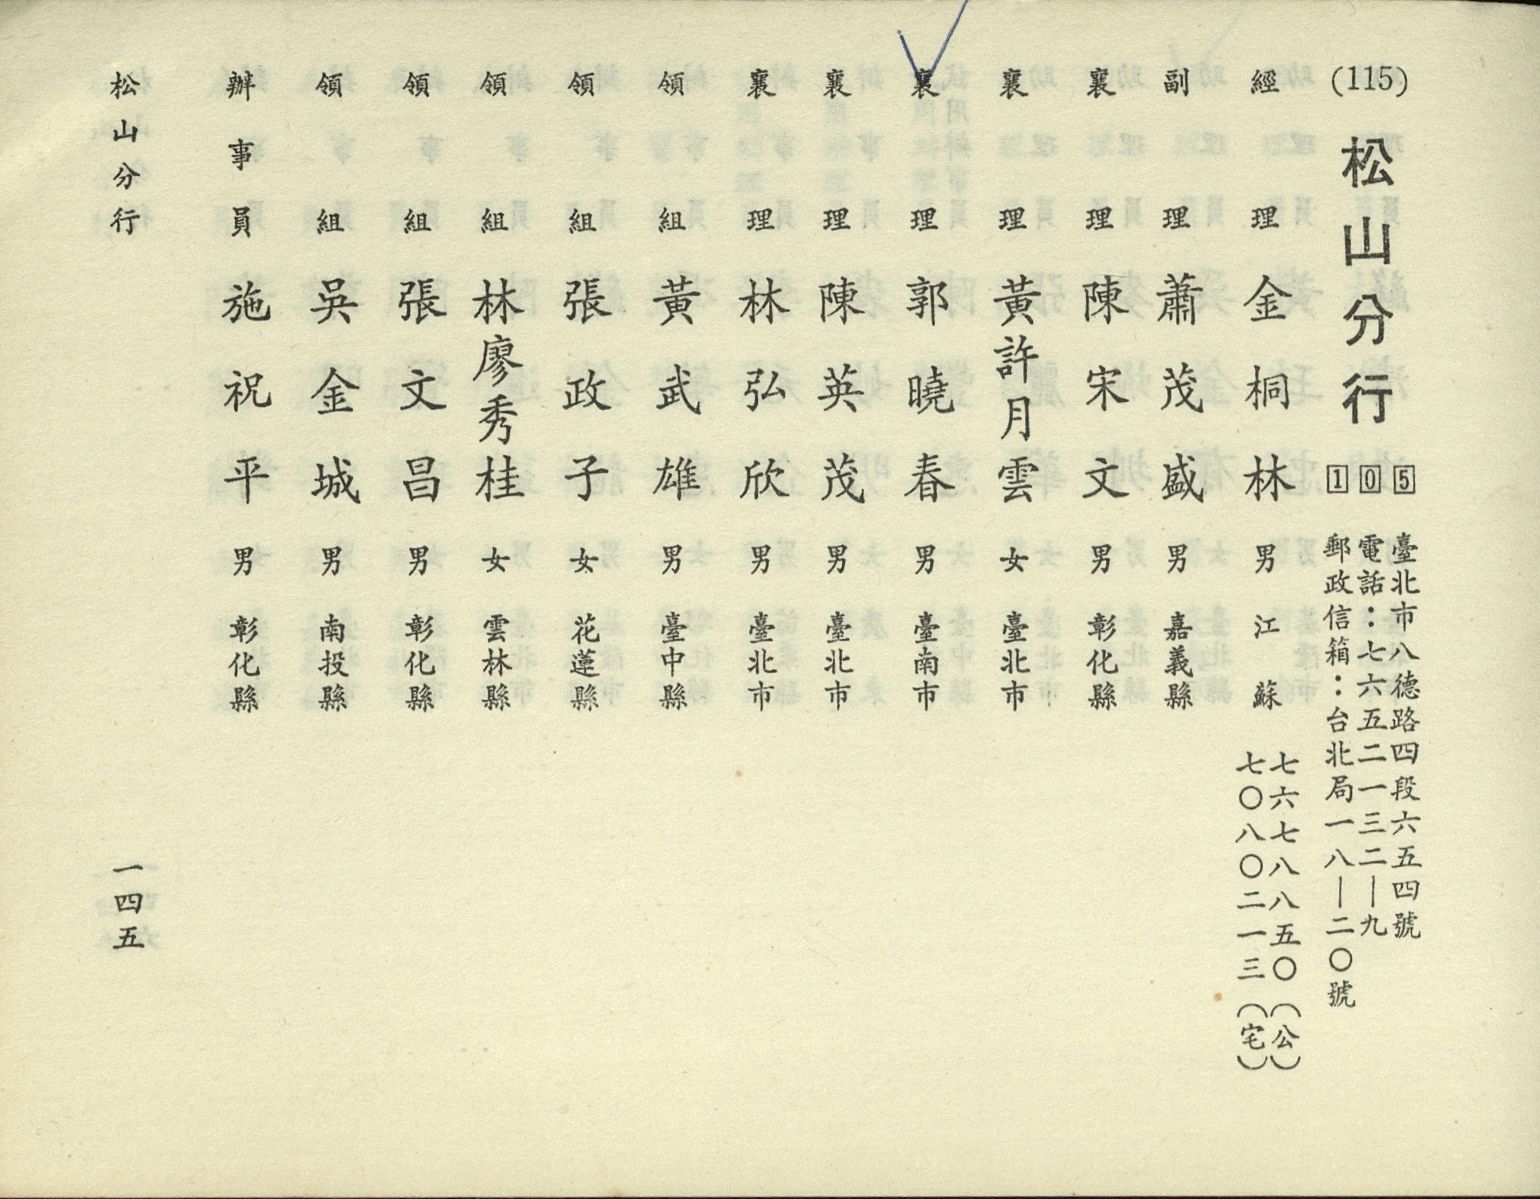 (115) 松山分行
105
臺北市八德路四段六五四號
電話：七六五二一三二—九
郵政信箱：台北局一八—二〇號
經理 金桐林 男 江蘇
七六七八八五〇（公）
七〇八〇二一三（宅）
副理 蕭茂盛 男 嘉義縣
襄理 陳宋文 男 彰化縣
襄理 黃許月雲 女 臺北市
襄理 郭曉春 男 臺南市
襄理 陳英茂 男 臺北市
襄理 林弘欣 男 臺北市
領組 黃武雄 男 臺中縣
領組 張政子 女 花蓮縣
領組 林廖秀桂 女 雲林縣
領組 張文昌 男 彰化縣
領組 吳金城 男 南投縣
辦事員 施祝平 男 彰化縣
松山分行 一四五